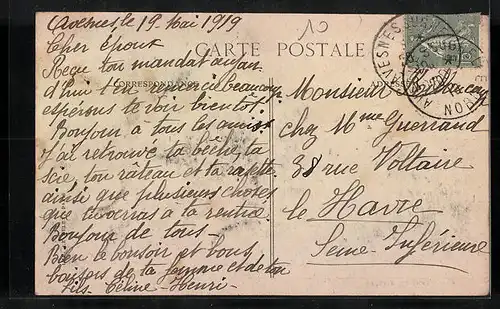 Avesnes le 19 Mai 1919
Cher Epoux
Reçu ton mandat aujour
d'hui t'en remercie beaucoup
espérons te voir bientôt.
Bonjour à tous les amis
J'ai retrouvé ta bêche, ta
scie, ton râteau et ta rasette
ainsi que plusieurs choses
que tu verras à ta rentrée.
Bonjour de tous –
Bien le bonsoir et bons
baisers de ta femme et de ton
fils. Céline – Henri –
10
CARTE POSTALE
CORRESPONDANCE
Monsieur
chez Mme Guerrand
38 rue Voltaire
le Havre
Seine-Inférieure
AVESNES